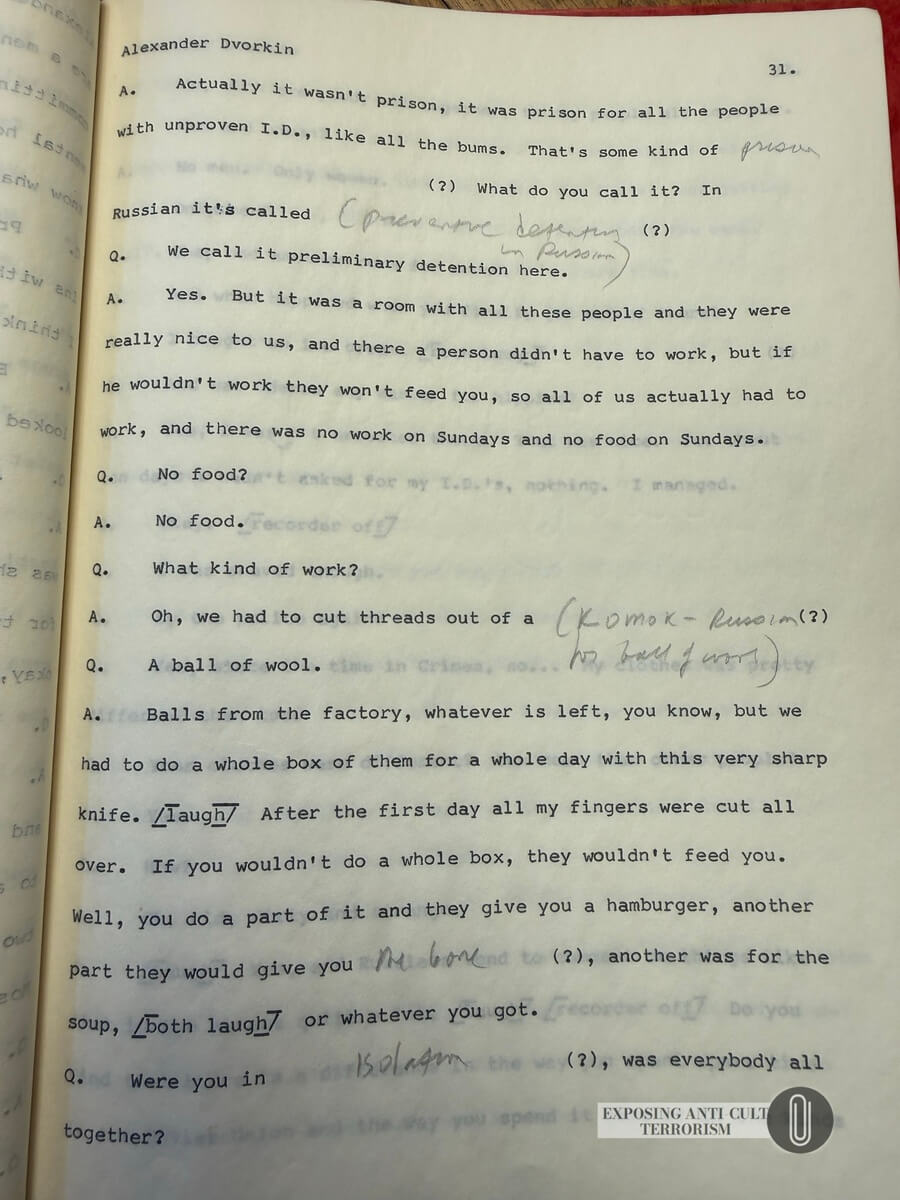 Alexander Dvorkin
31.
A. Actually it wasn't prison, it was prison for all the people
with unproven I.D., like all the bums. That's some kind of prison
(?) What do you call it? In
Russian it's called (preventive detention (?)
in Russian)
Q. We call it preliminary detention here.
A. Yes. But it was a room with all these people and they were
really nice to us, and there a person didn't have to work, but if
he wouldn't work they won't feed you, so all of us actually had to
work, and there was no work on Sundays and no food on Sundays.
Q. No food?
A. No food.
Q. What kind of work?
A. Oh, we had to cut threads out of a (Komok - Russian (?)
for ball of wool)
Q. A ball of wool.
A. Balls from the factory, whatever is left, you know, but we
had to do a whole box of them for a whole day with this very sharp
knife. /laugh/ After the first day all my fingers were cut all
over. If you wouldn't do a whole box, they wouldn't feed you.
Well, you do a part of it and they give you a hamburger, another
part they would give you the bone (?), another was for the
soup, /both laugh/ or whatever you got.
Q. Were you in isolation (?), was everybody all
together?
EXPOSING ANTI CULT
TERRORISM